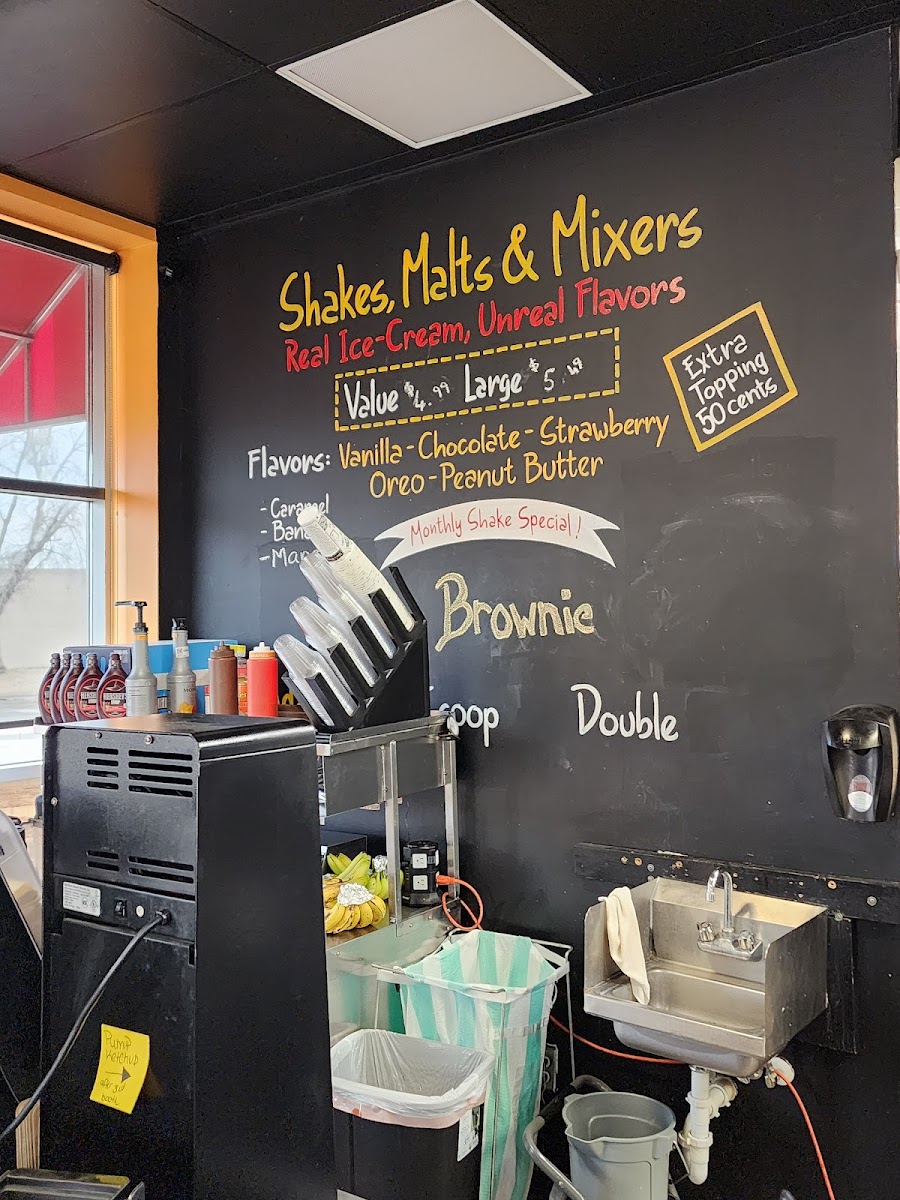 Shakes, Malts & Mixers
Real Ice-Cream, Unreal Flavors
Value $4.99 Large $5.49
Extra
Topping
50 cents
Flavors: Vanilla - Chocolate - Strawberry
Oreo - Peanut Butter
- Caramel
- Bana
- Man
Monthly Shake Special!
Brownie
coop Double
HERSHEY'S
Pump
Ketchup
booth